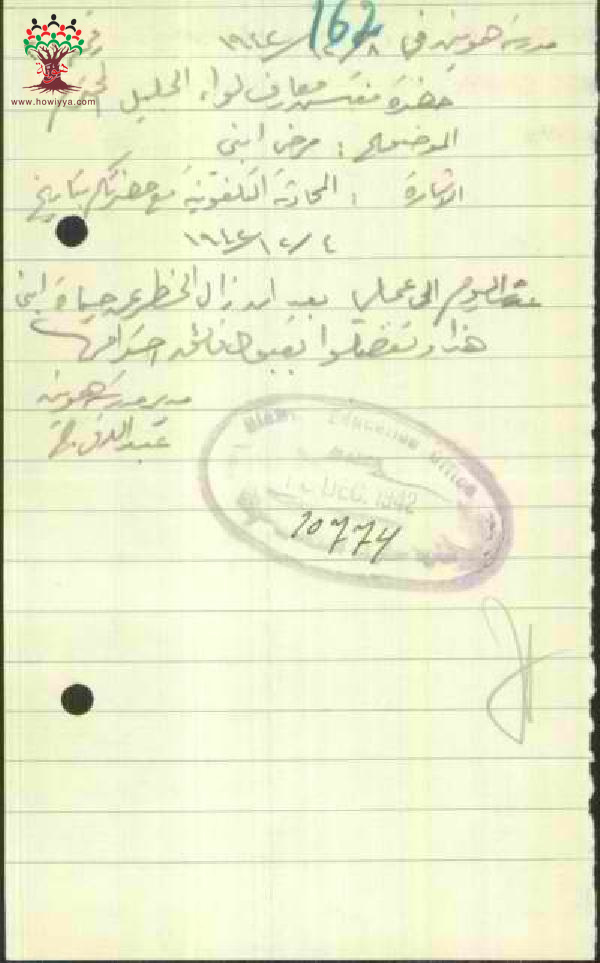 www.howiyya.com
162
مدرسة هونين في ٨/١٢/١٩٤٢
حضرة مفتش معارف لواء الجليل المحترم
الموضوع : مرض ابني
الاشارة : المحادثة التلفونية مع حضرتكم بتاريخ
٤/١٢/١٩٤٢
اليوم الى عملي بعد ان زال الخطر عن حياة ابني
هذا وتفضلوا بقبول فائق احترامي
مدير مدرسة هونين
عبد
Education Office
DEC. 1942
10774